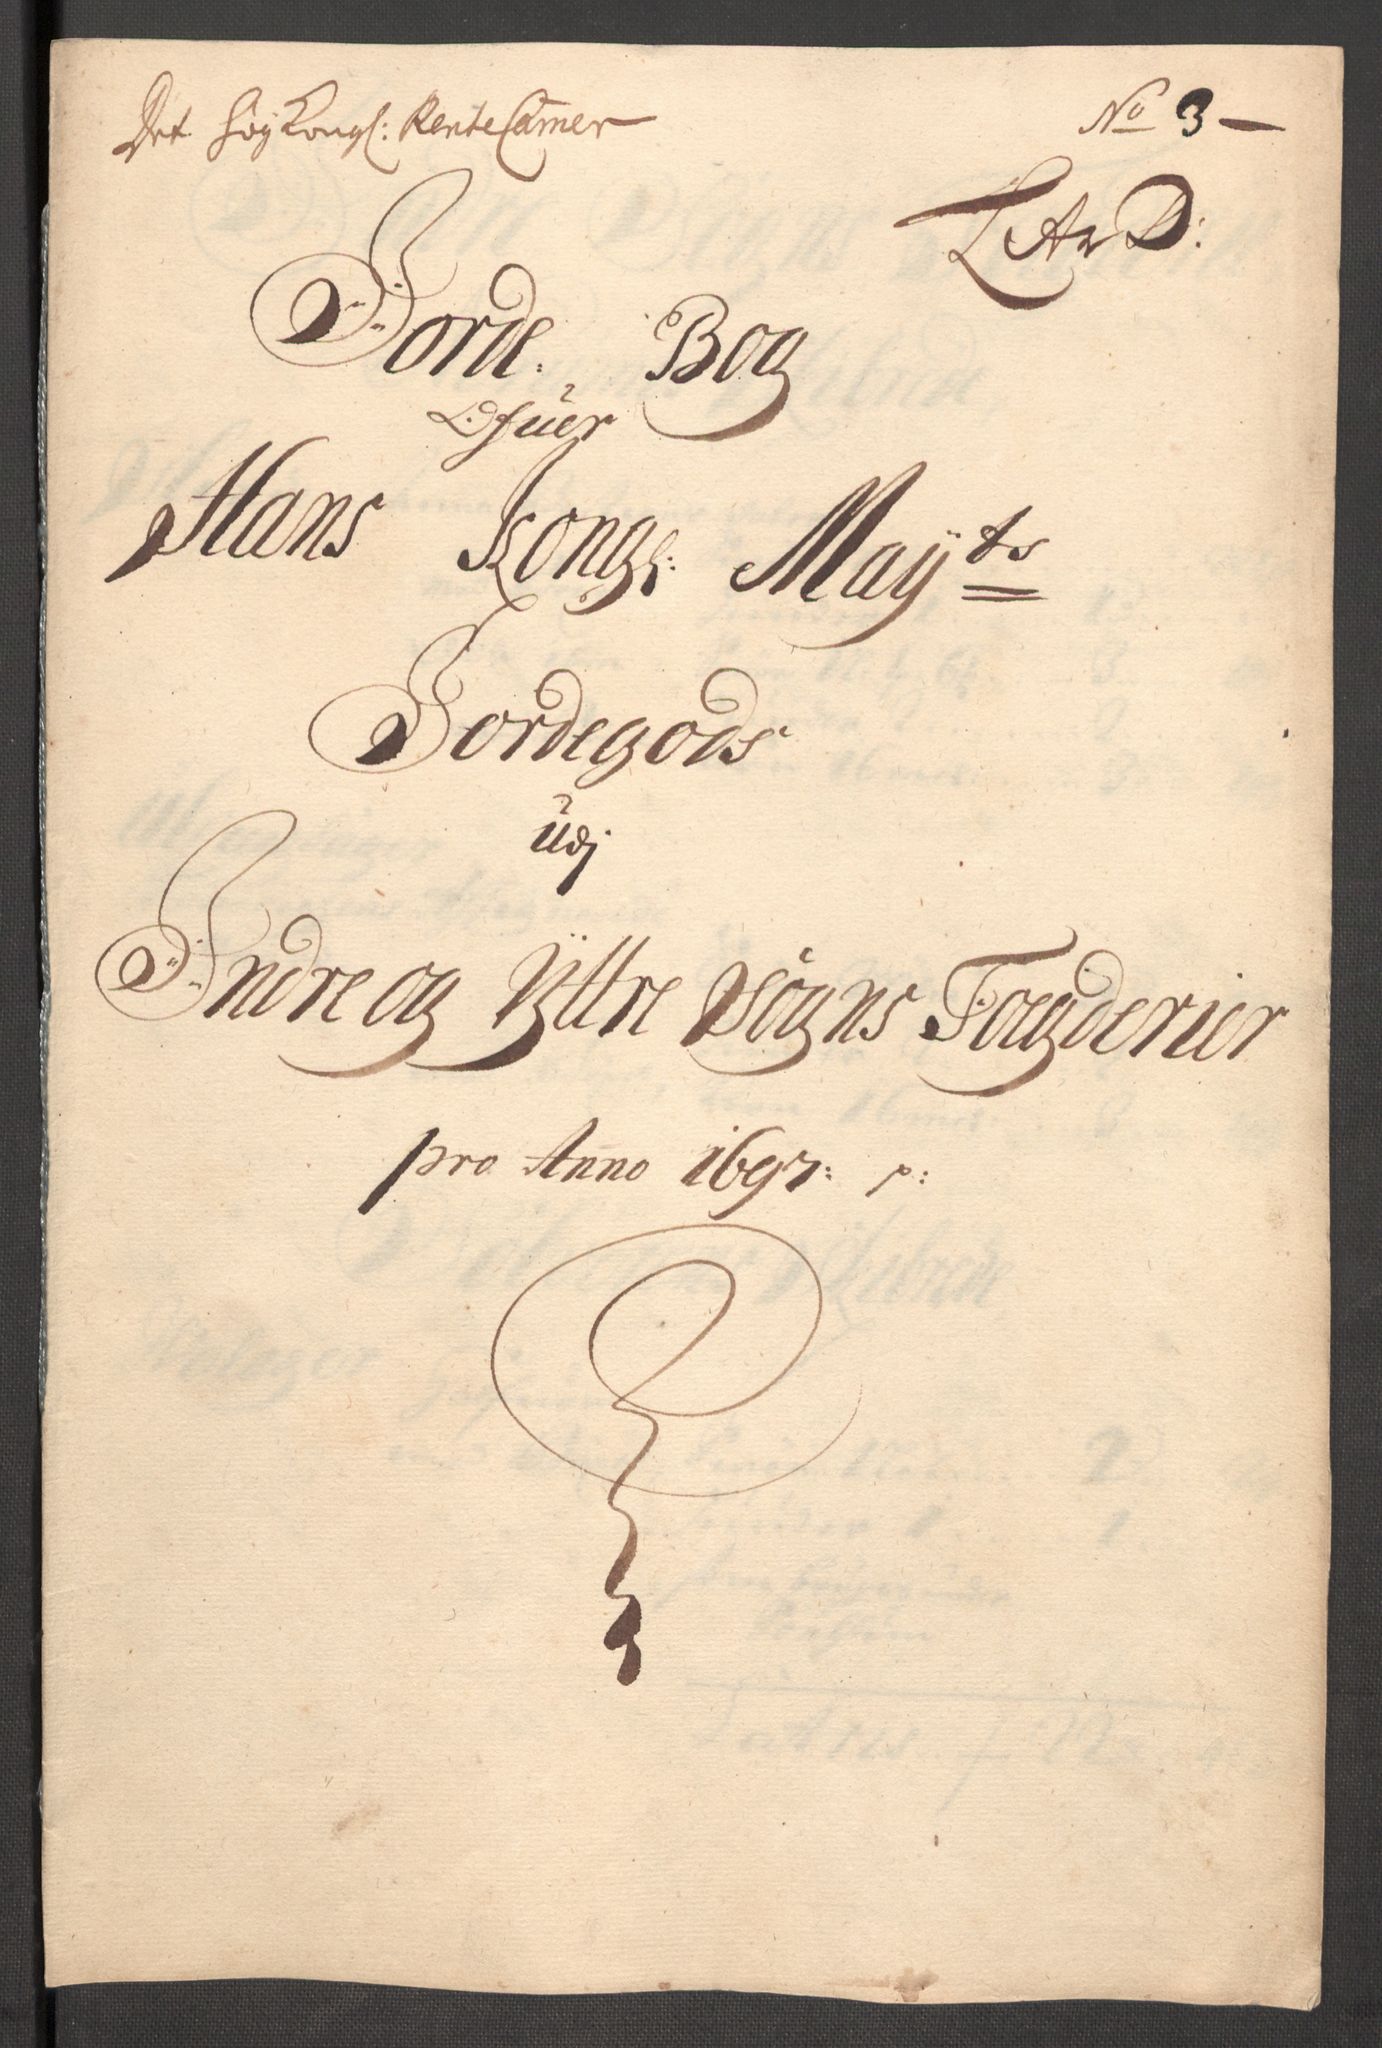 Det höy Kongl: Rente Camer
No 3
L Ar D:
Jorde. Bog
Ofuer
Hans Kongl: Mayts
Jordegods
udj
Indre og Yttre Sogns Fogderier
pro Anno 1697: p: